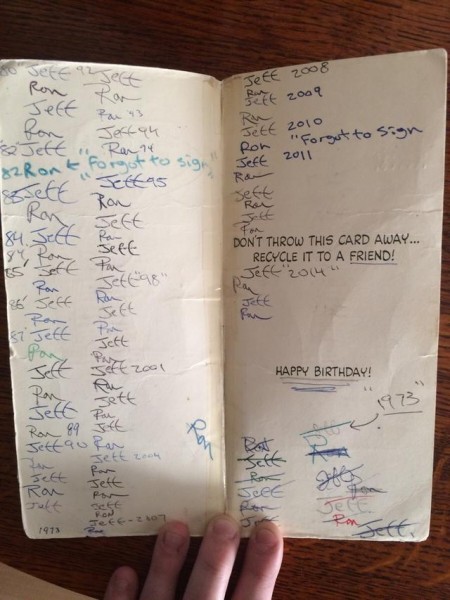 Jeff
Ron
Jeff
Ron
82 Ron ← "Forgot to sign"
83 Jeff
Ron
84 Jeff
84' Ron
85' Jeff
Ron
86' Jeff
Ron
87' Jeff
Ron
Jeff
Ron
Jeff
Ron 89
Jeff 90
Ron
Jeff
Ron
Jeff
1973
92 Jeff
Ron
Ron 93
Jeff 94
Ron 94
Jeff 95
Ron
Jeff
Ron
Jeff
Ron
Jeff "98"
Ron
Jeff
Ron
Jeff
Ron
Jeff 2001
Ron
Jeff
Ron
Jeff
Ron
Jeff 2004
Ron
Jeff
Ron
Jeff
RON
Jeff - 2007
Ron
Ron
Jeff 2008
Ron
Jeff 2009
Ron
Jeff 2010
Ron "Forgot to Sign
Jeff 2011
Ron
Jeff
Ron
Jeff
Ron
DON'T THROW THIS CARD AWAY...
RECYCLE IT TO A FRIEND!
Jeff "2014"
Ron
Jeff
Ron
HAPPY BIRTHDAY!
"1973"
Ron
Jeff
Ron
Jeff
Ron
Jeff
Ron
Jeff
Ron
Jeff
Ron
Jeff.